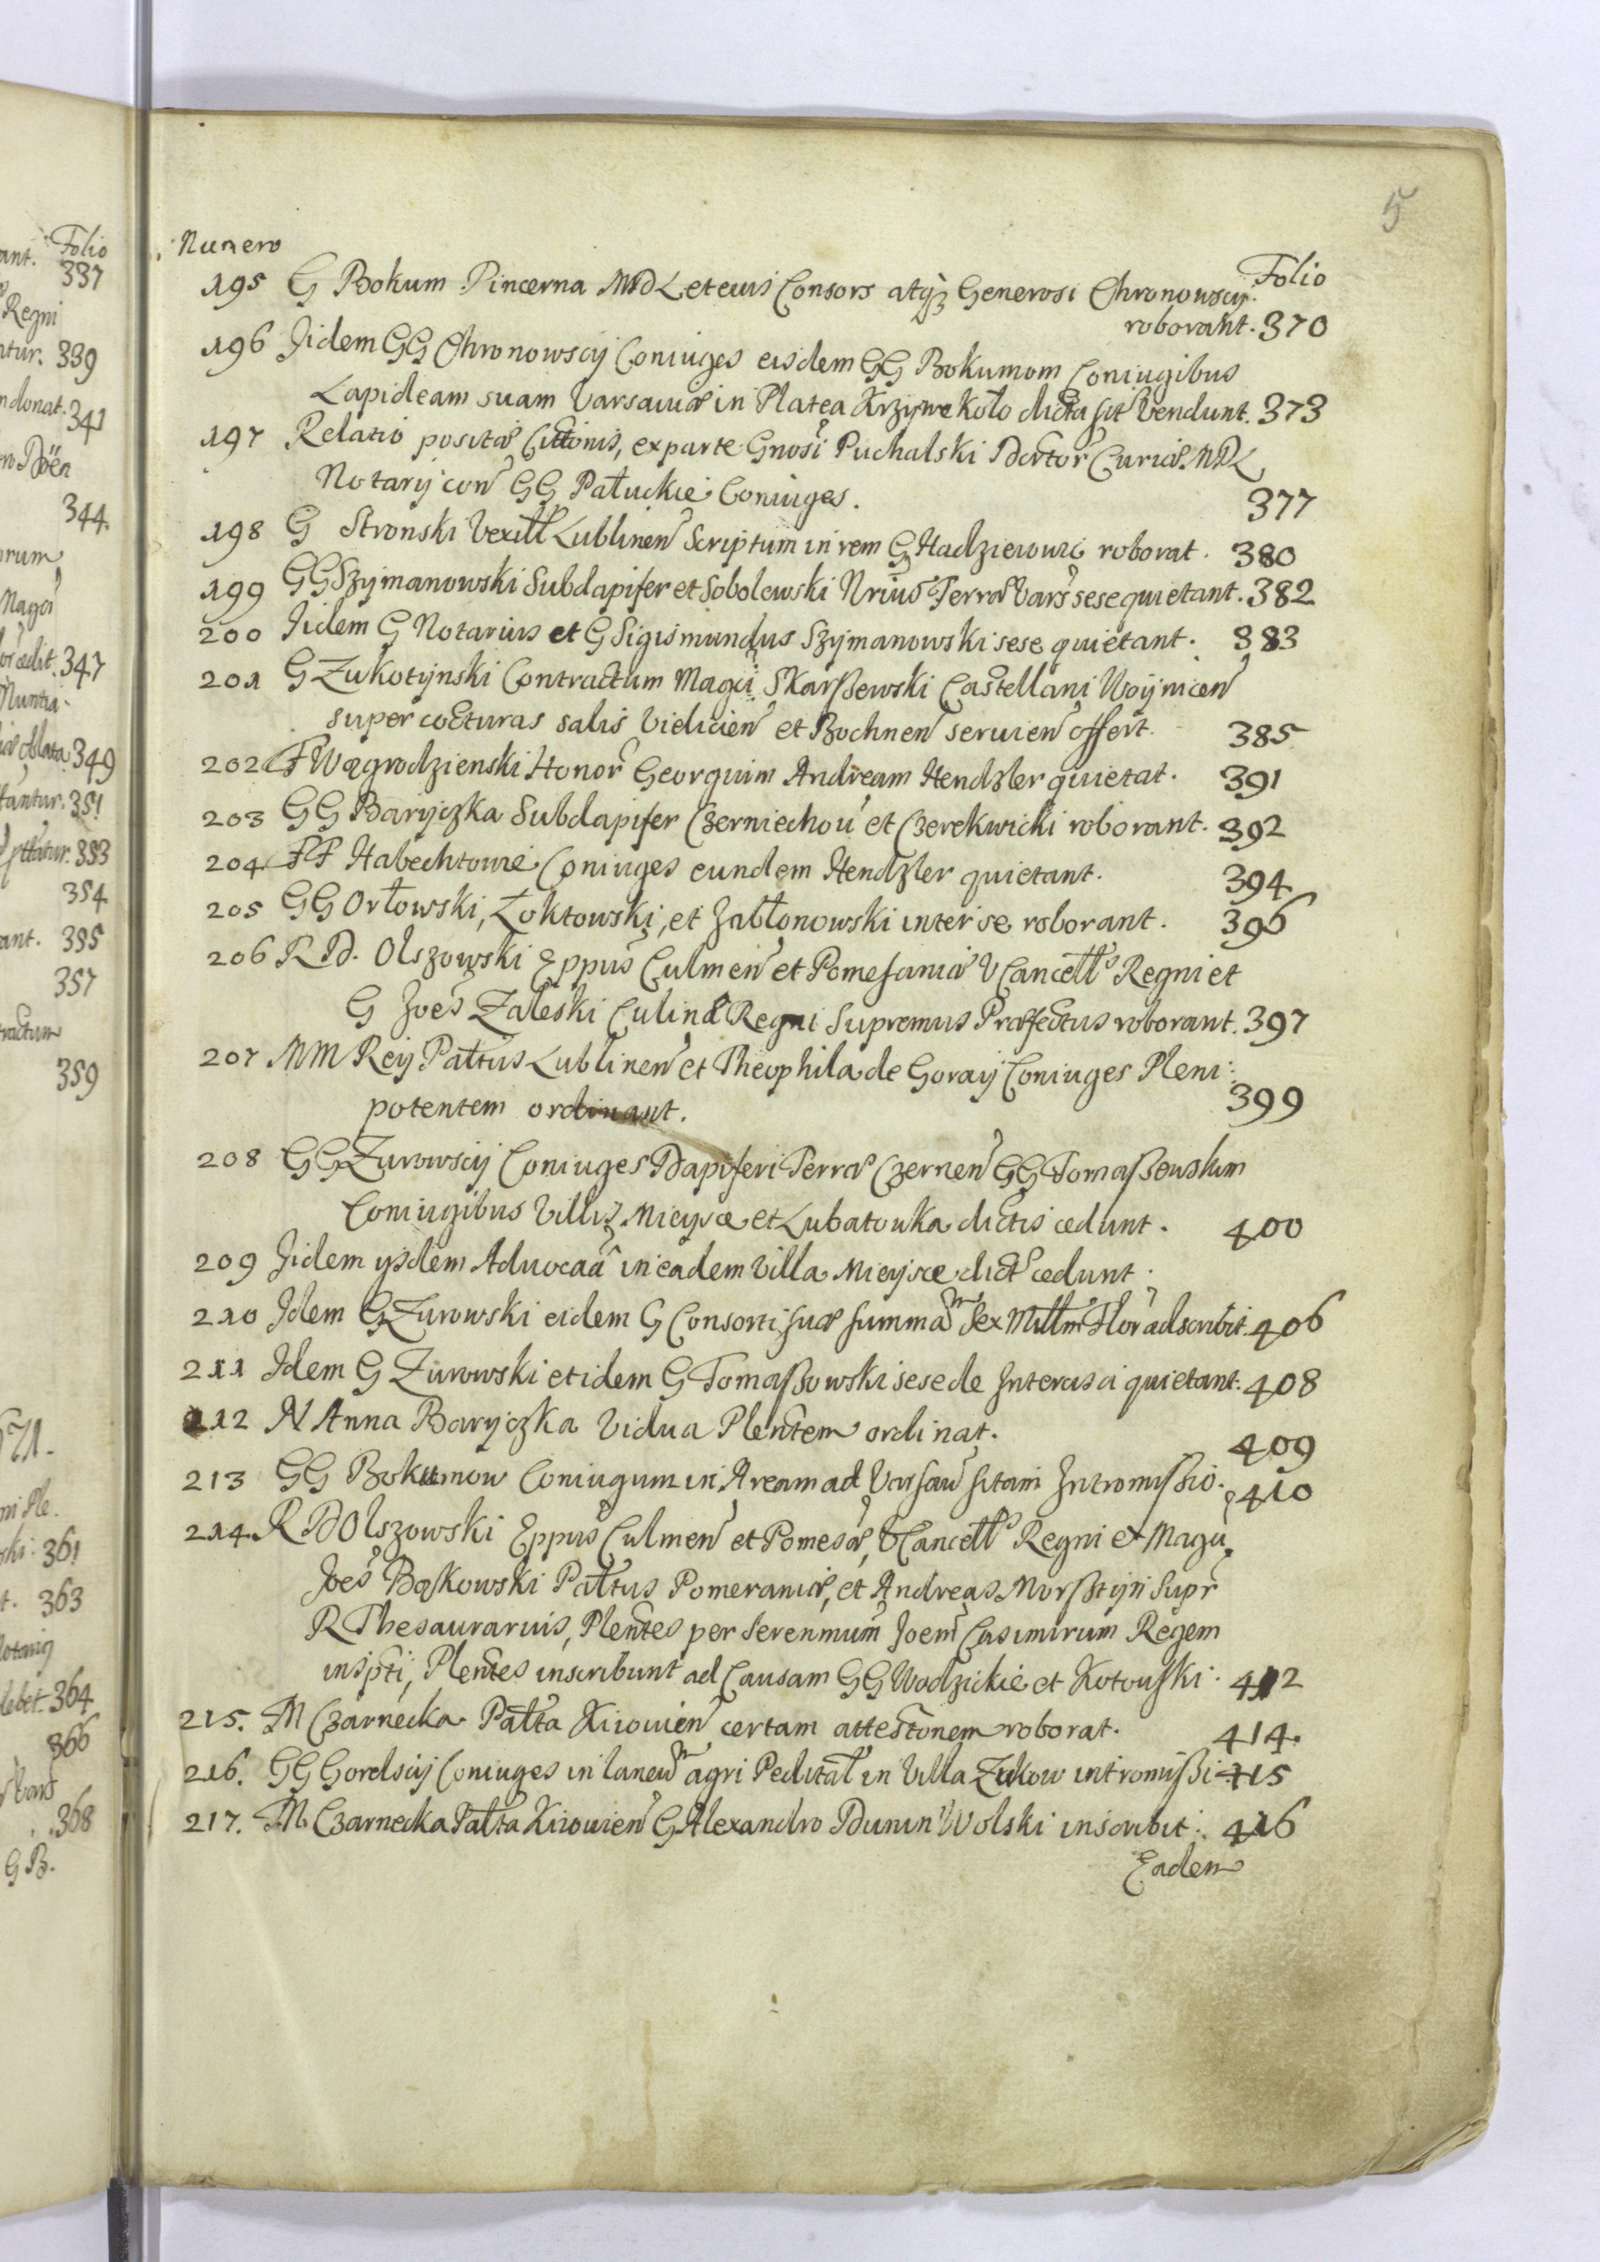 5
Numero
Folio
195 G Bokum Pincerna MDL et eius Consors atq3 Generosi Chronowscy
roborant. 370
196 Iidem GG Chronowscij Coniuges eisdem GG Bokumom Coniugibus
Lapideam suam Varsaviæ in Platea Krzywe Koło dicta sit vendunt. 373
197 Relatio positæ Cittõnis, ex parte Gnosi Puchalski Dector Curiæ MDL
Notarij con GG Pałuckie Coniuges. 377
198 G Stronski Vexill Lublinen Scriptum in rem G Hadziewicz roborat. 380
199 GG Szijmanowski Subdapifer et Sobolewski Nrius Terræ Vars sese quietant. 382
200 Iidem G Notarius et G Sigismundus Szijmanowski sese quietant. 383
201 G Zukotijnski Contractum Magci Skarßewski Castellani Woijnicen
super cocturas salis Vielicien et Bochnen servien offert. 385
202 F Wągrodzienski Honor Georgium Andream Hendzler quietat. 391
203 GG Barijczka Subdapifer Czerniechou et Czerekwicki roborant. 392
204 FF Habechtowie Coniuges eundem Hendzler quietant. 394
205 GG Orłowski, Łoktowski, et Jabłonowski inter se roborant. 396
206 R D. Olszowski Eppus Culmen et Pomesaniæ VCancell Regni et
G Joes Zaleski Culinæ Regni Supremus Præfectus roborant. 397
207 MM Reij Pałtus Lublinen et Theophila de Goraij Coniuges Pleni:
potentem ordinant. 399
208 GG Zurowscij Coniuges Dapiferi Terræ Czernen GG Tomaßewskim
Coniugibus Villis Mieysce et Lubatouka dictis cedunt. 400
209 Iidem ijsdem Advocaã in eadem Villa Mieijsce dict cedunt.
210 Idem G Zurowski eidem G Consorti suæ summam sex Millm Flor adscribit. 406
211 Idem G Zurowski et idem G Tomaßowski sese de Intercisa quietant. 408
212 N Anna Baryczka Vidua Plentem ordinat. 409
213 GG Bokumow Coniugum in Aream ad Varsaw sitam Intromissio. 410
214. R D Olszowski Eppus Culmen et Pomesæ, VCancell Regni et Magci
Joes Bąkowski Pałtus Pomeraniæ, et Andreas Morßtijn Supr
R Thesaurarius, Plentes per Serenmum Joem Casimirum Regem
inspti, Plentes inscribunt ad Causam GG Wodzickie et Kotouski. 412
215. M Czarnecka Pałta Kiiowien certam attestonem roborat. 414.
216. GG Gordscij Coniuges in laneum agri Peditał in Villa Zukow intromissi 415
217. M Czarnecka Pałta Kiiowien G Alexandro Dunin Wolski inscribit. 416
Eadem
ant. Folio
337
Regni
ntur. 339
ndonat. 341
344.
347
Nuntia
oblata 349
351
353
354
ant. 355
357
359
361
363
364
366
368
G B.